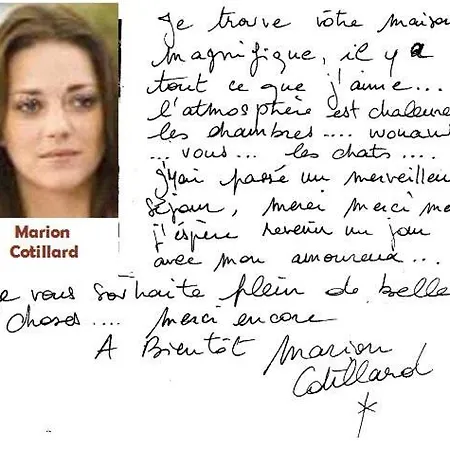 Je trouve votre maison
magnifique, il y a
tout ce que j'aime...
l'atmosphère est chaleure
les chambres.... wouaw
... vous... les chats....
j'y ai passé un merveilleu
séjour, merci merci me
j'espère revenir un jour
avec mon amoureux...
Marion
Cotillard
e vous souhaite plein de belle
choses.... merci encore
A Bientôt Marion
Cotillard